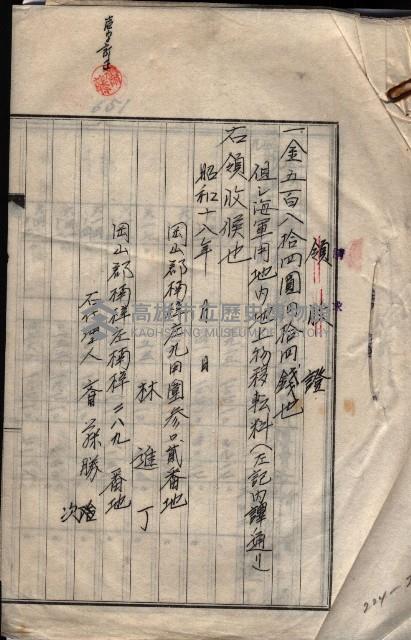 領收證
一金五百八拾四圓四拾四錢也
但シ海軍用地內地上物移転料(左記內譯通リ)
右領收候也
昭和十八年 月 日
岡山郡楠梓庄九田園參口貳番地
林進丁
岡山郡楠梓庄楠梓二八九番地
右代理人 齋藤勝治
次
高雄市立歷史博物館
KAOHSIUNG MUSEUM OF HISTORY
651
204-2